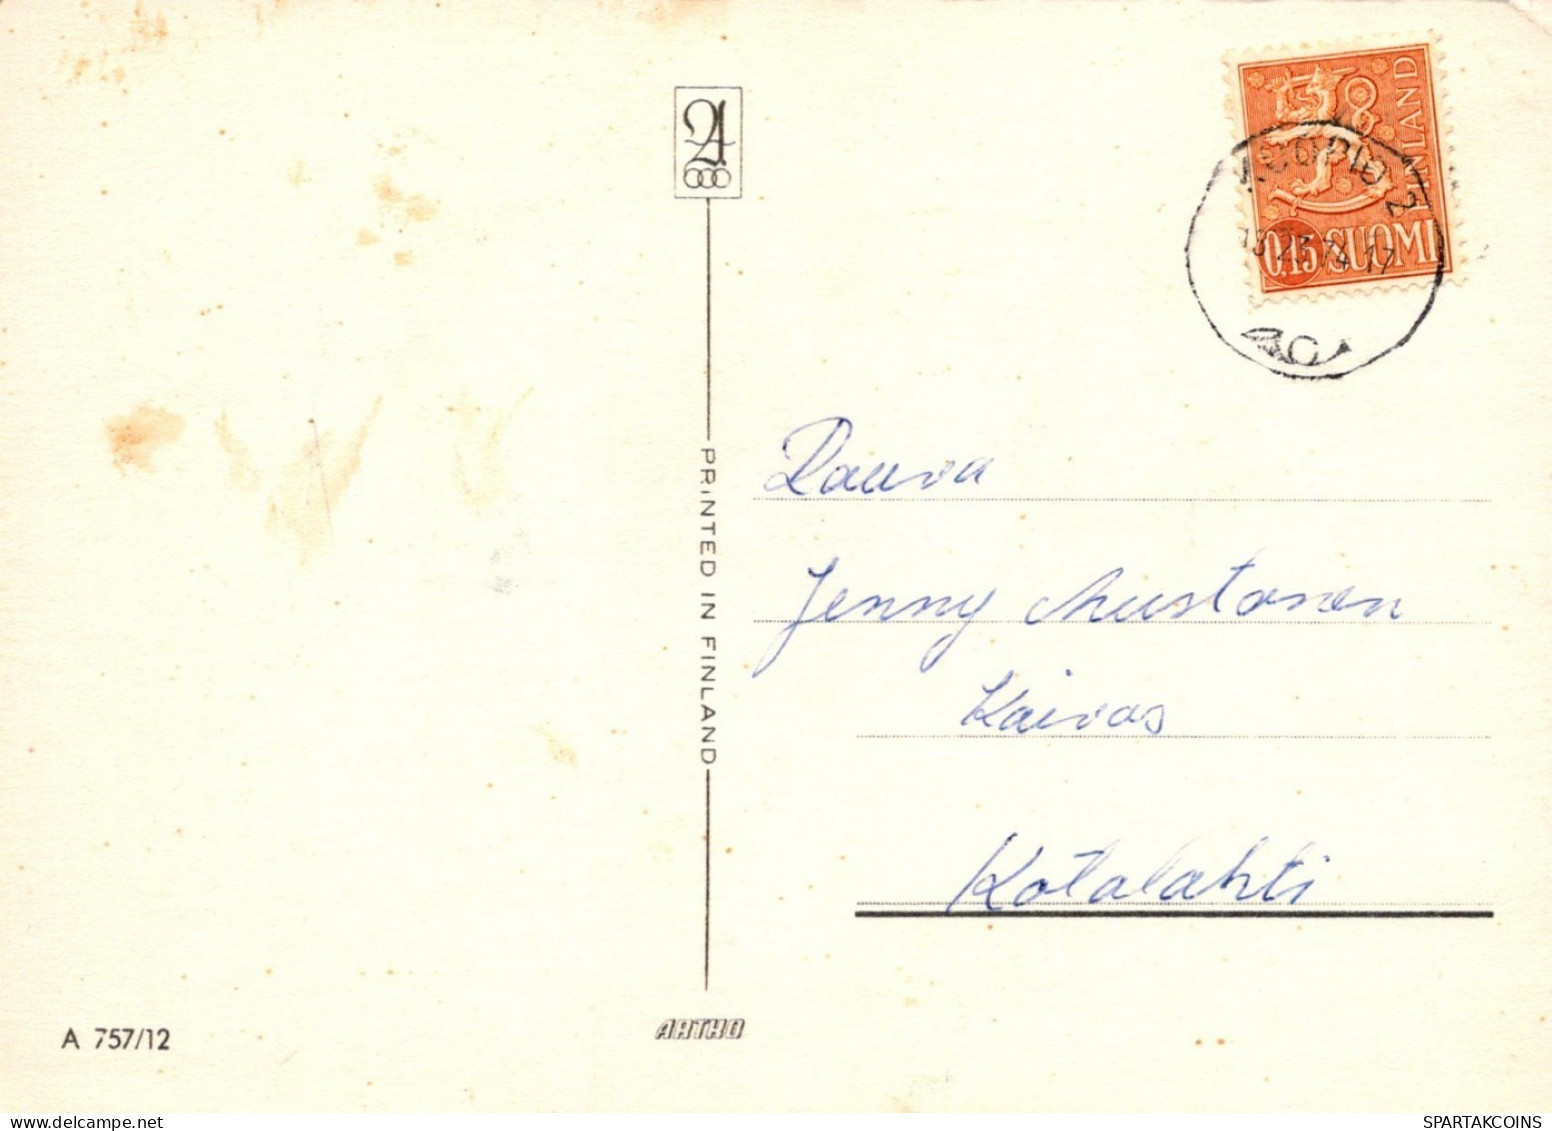 FINLAND
KUOPIO 2
0,15 SUOMI
PRINTED IN FINLAND
Rouva
Jenny Mustonen
Kaivos
Kotalahti
A 757/12
ARTKO
WWW.DELCAMPE.net
SPARTAKCOINS